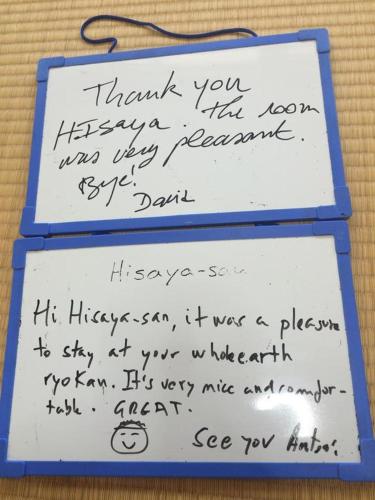 Thank you
Hisaya. The room
was very pleasant.
Bye!
David
Hisaya-san
Hi Hisaya-san, it was a pleasure
to stay at your wholeearth
ryokan. It's very nice and comfor-
table. GREAT.
See you